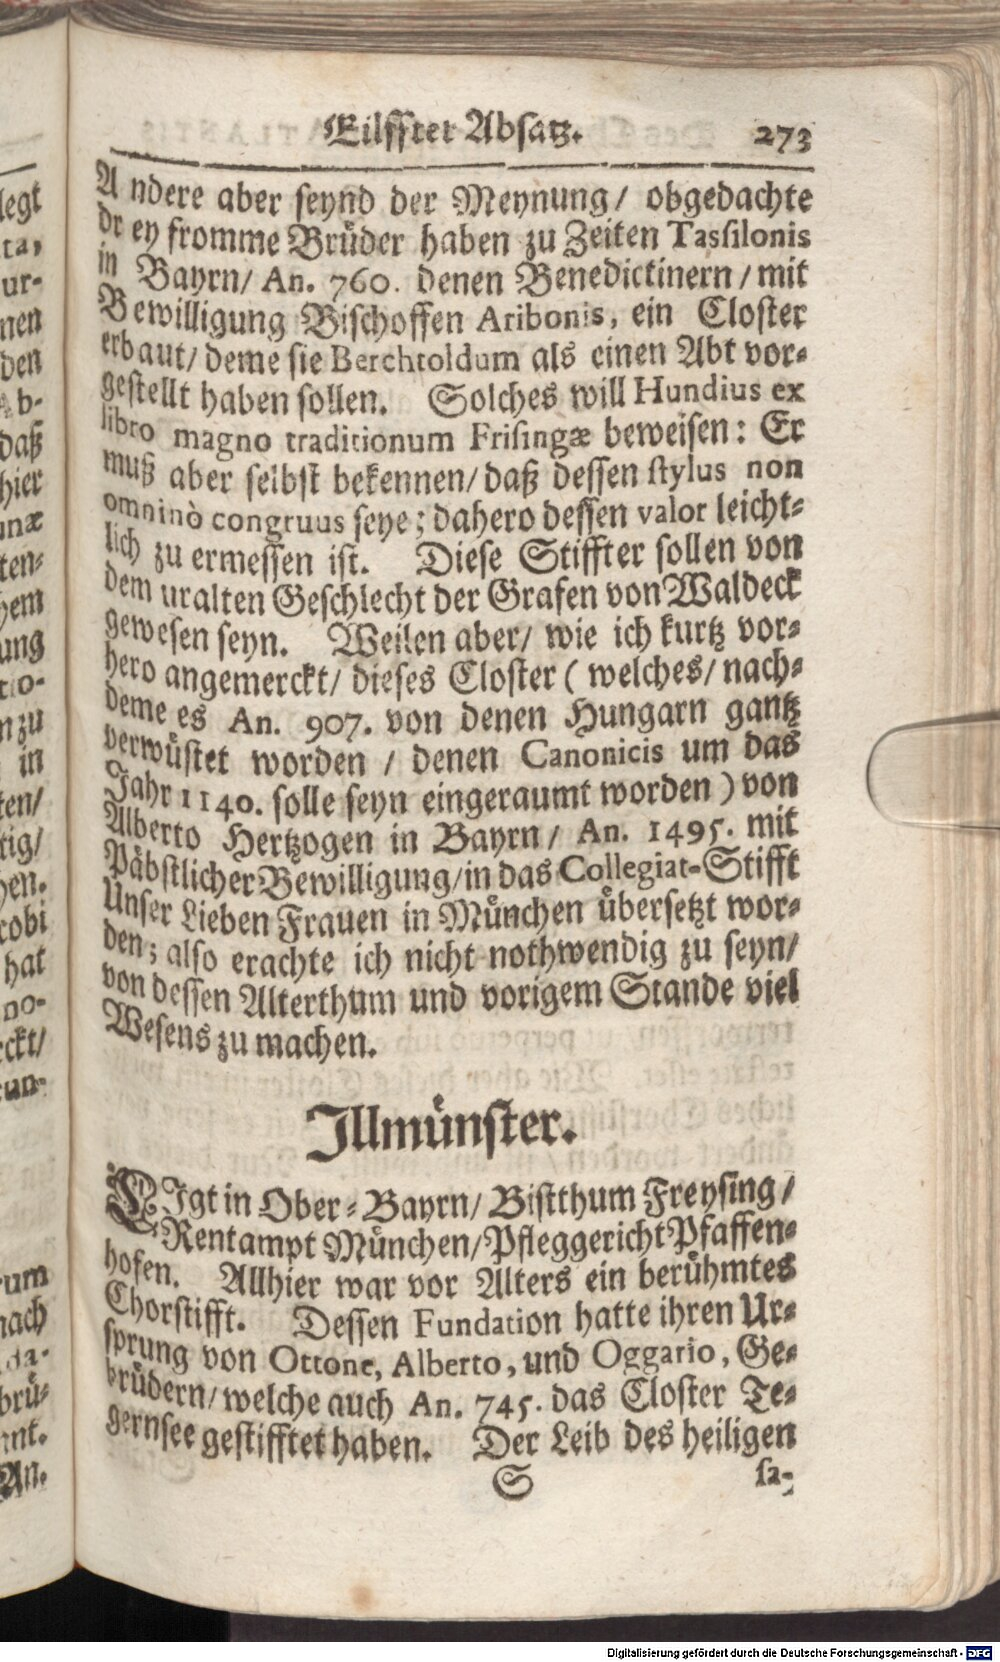 Eilffter Absatz. 273
Andere aber seynd der Meynung/ obgedachte
drey fromme Brüder haben zu Zeiten Tassilonis
in Bayrn/ An. 760. denen Benedictinern/ mit
Bewilligung Bischoffen Aribonis, ein Closter
erbaut/ deme sie Berchtoldum als einen Abt vor-
gestellt haben sollen. Solches will Hundius ex
libro magno traditionum Frisingæ beweisen: Er
muß aber selbst bekennen/ daß dessen stylus non
omninò congruus seye; dahero dessen valor leicht-
lich zu ermessen ist. Diese Stiffter sollen von
dem uralten Geschlecht der Grafen von Waldeck
gewesen seyn. Weilen aber/ wie ich kurtz vor-
hero angemerckt/ dieses Closter ( welches/ nach-
deme es An. 907. von denen Hungarn gantz
verwüstet worden / denen Canonicis um das
Jahr 1140. solle seyn eingeraumt worden ) von
Alberto Hertzogen in Bayrn/ An. 1495. mit
Päbstlicher Bewilligung/ in das Collegiat-Stifft
Unser Lieben Frauen in München übersetzt wor-
den; also erachte ich nicht nothwendig zu seyn/
von dessen Alterthum und vorigem Stande viel
Wesens zu machen.
Illmünster.
LIgt in Ober-Bayrn/ Bistthum Freysing/
Rentampt München/ Pfleggericht Pfaffen-
hofen. Allhier war vor Alters ein berühmtes
Chorstifft. Dessen Fundation hatte ihren Ur-
sprung von Ottone, Alberto, und Oggario, Ge-
brüdern/ welche auch An. 745. das Closter Te-
gernsee gestifftet haben. Der Leib des heiligen
S sa-
legt
ta,
ur-
nen
den
Ab-
daß
hier
unæ
ten-
hem
ung
tio-
n zu
in
ten/
tig/
hen.
cobi
hat
no-
eckt/
tun-
rum
nach
da-
brü-
mt.
An.
Digitalisierung gefördert durch die Deutsche Forschungsgemeinschaft - DFG